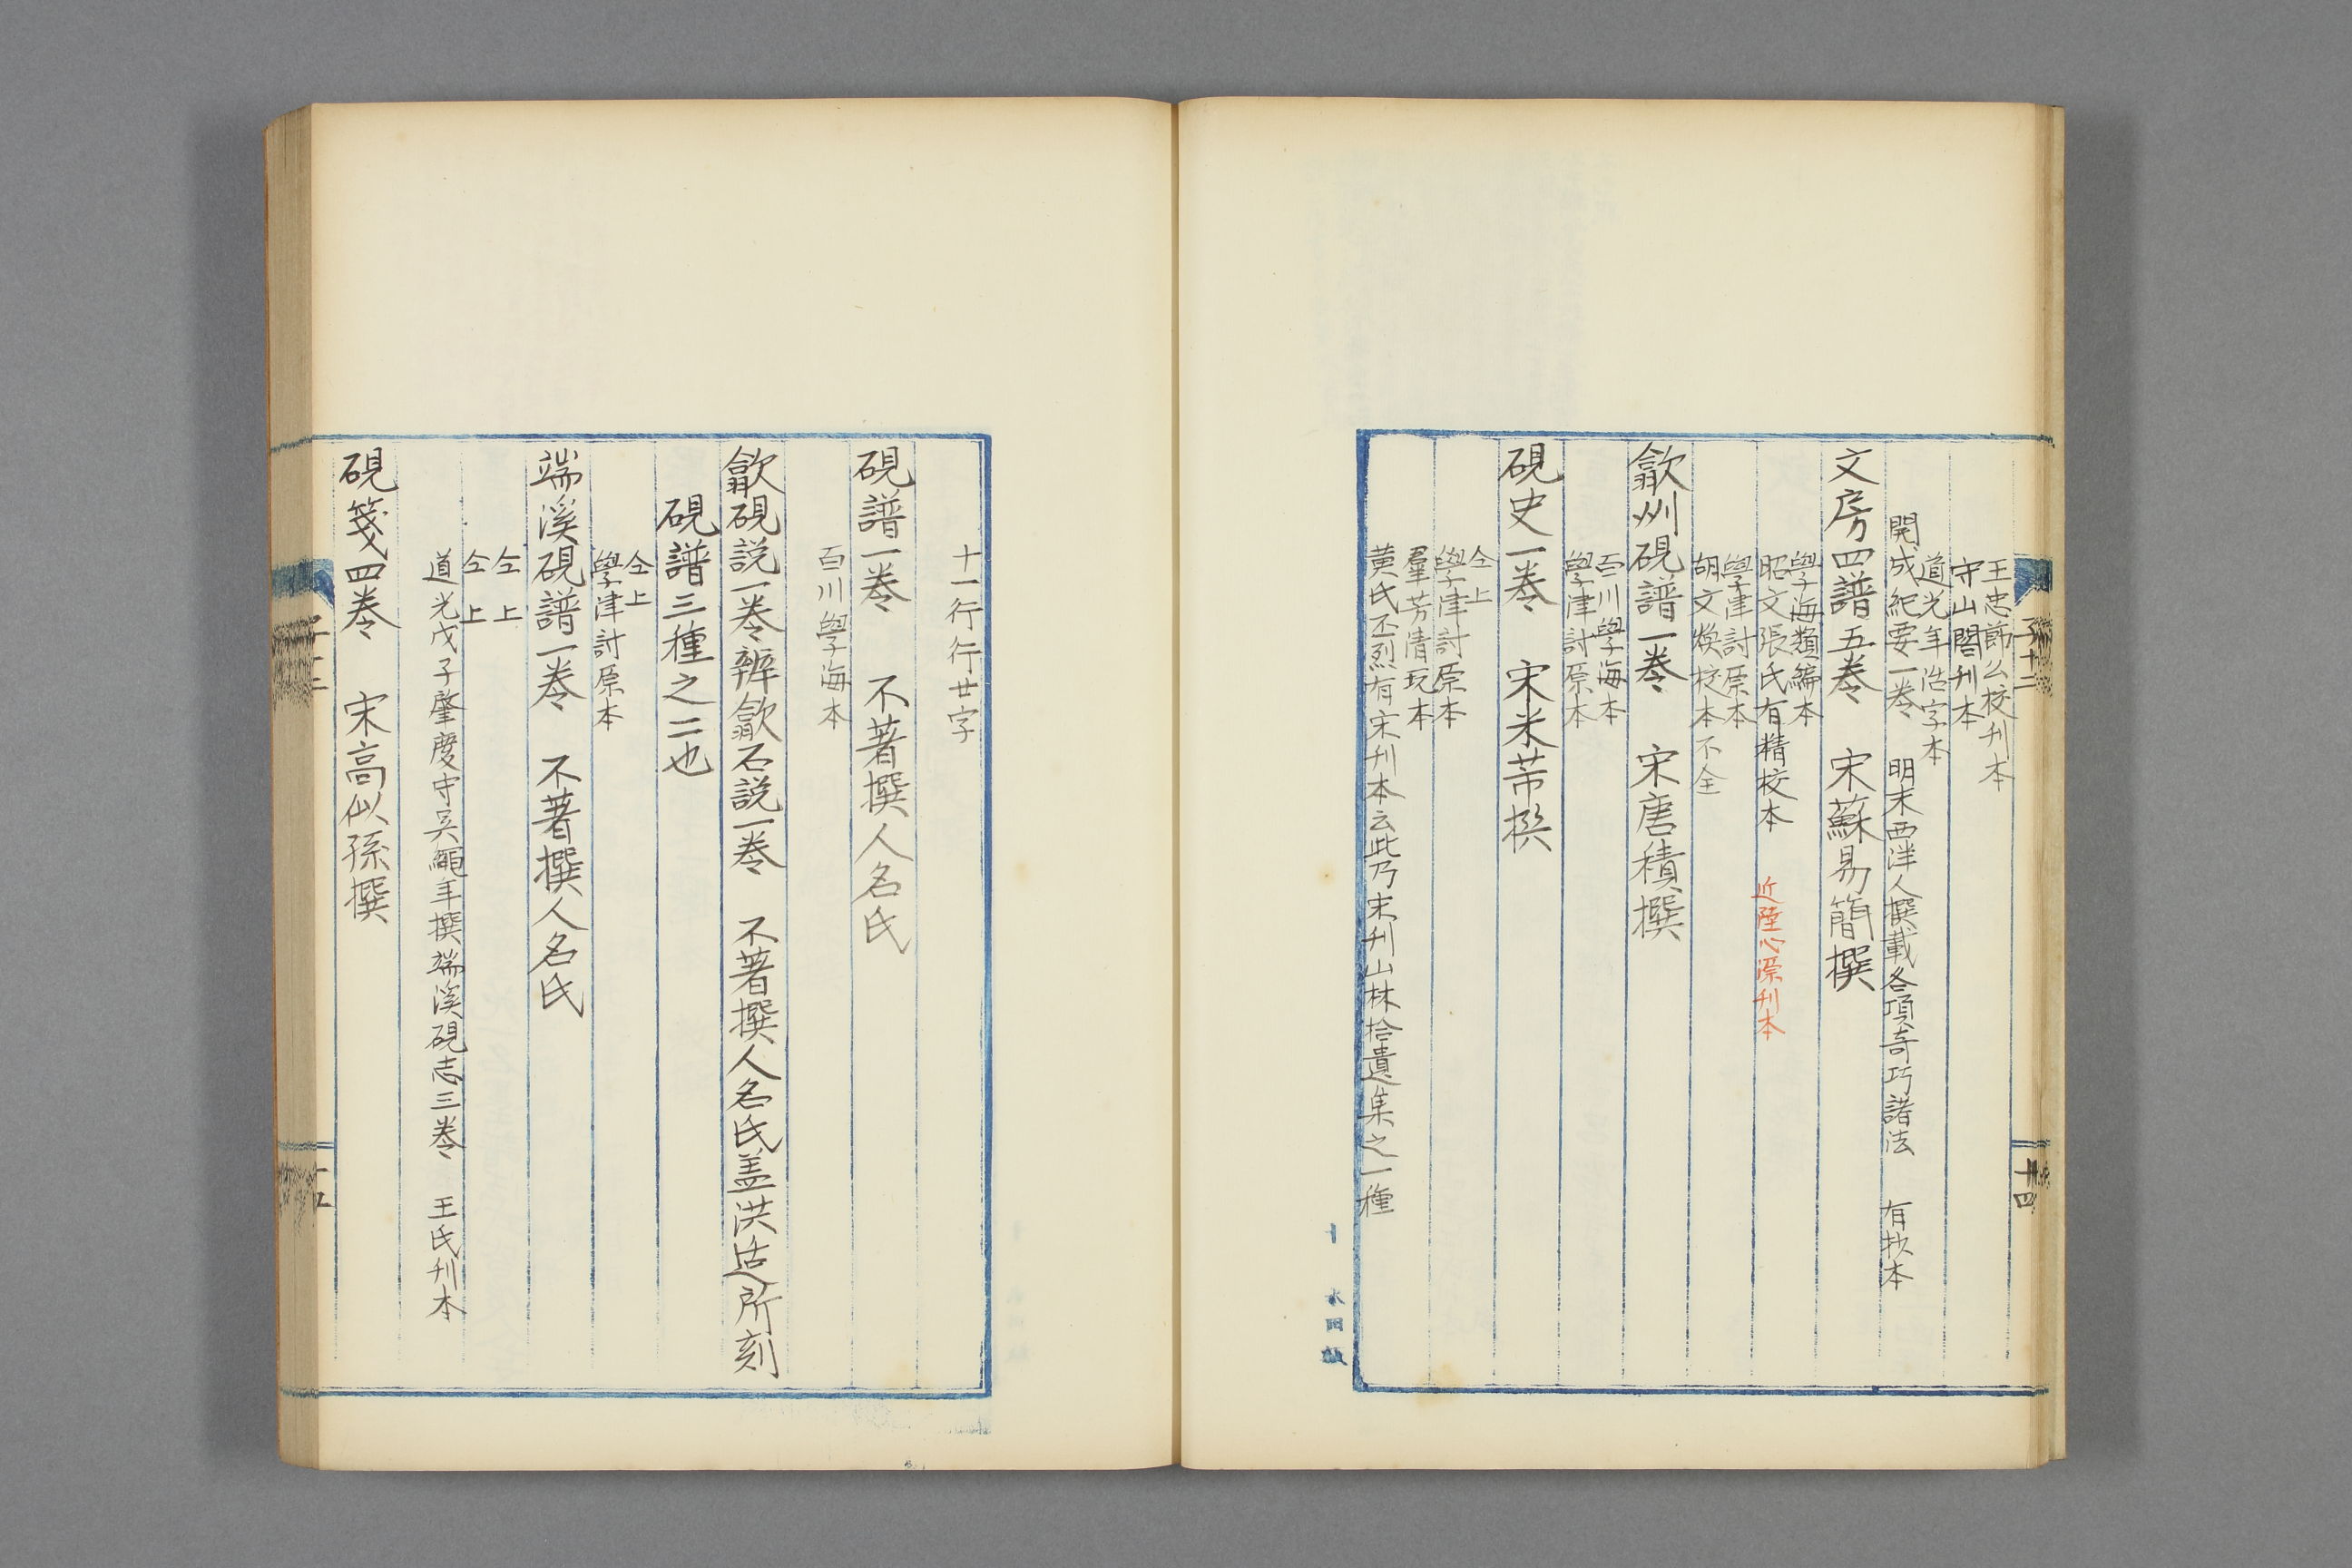 子十二
十四
王忠節公校刊本
守山閣刊本
道光年活字本
開成紀要一卷　明末西洋人撰載各項奇巧諸法　有抄本
文房四譜五卷　宋蘇易簡撰
學海類編本
昭文張氏有精校本　近陸心源刊本
學津討原本
胡文煥校本不全
歙州硯譜一卷　宋唐積撰
百川學海本
學津討原本
硯史一卷　宋米芾撰
仝上
學津討原本
羣芳清玩本
黃氏丕烈有宋刊本云此乃宋刊山林拾遺集之一種
十一行行廿字
硯譜一卷　不著撰人名氏
百川學海本
歙硯說一卷辨歙石說一卷　不著撰人名氏盖洪适所刻
硯譜三種之二也
仝上
學津討原本
端溪硯譜一卷　不著撰人名氏
仝上
仝上
道光戊子肇慶守吳繩年撰端溪硯志三卷　王氏刊本
硯箋四卷　宋高似孫撰